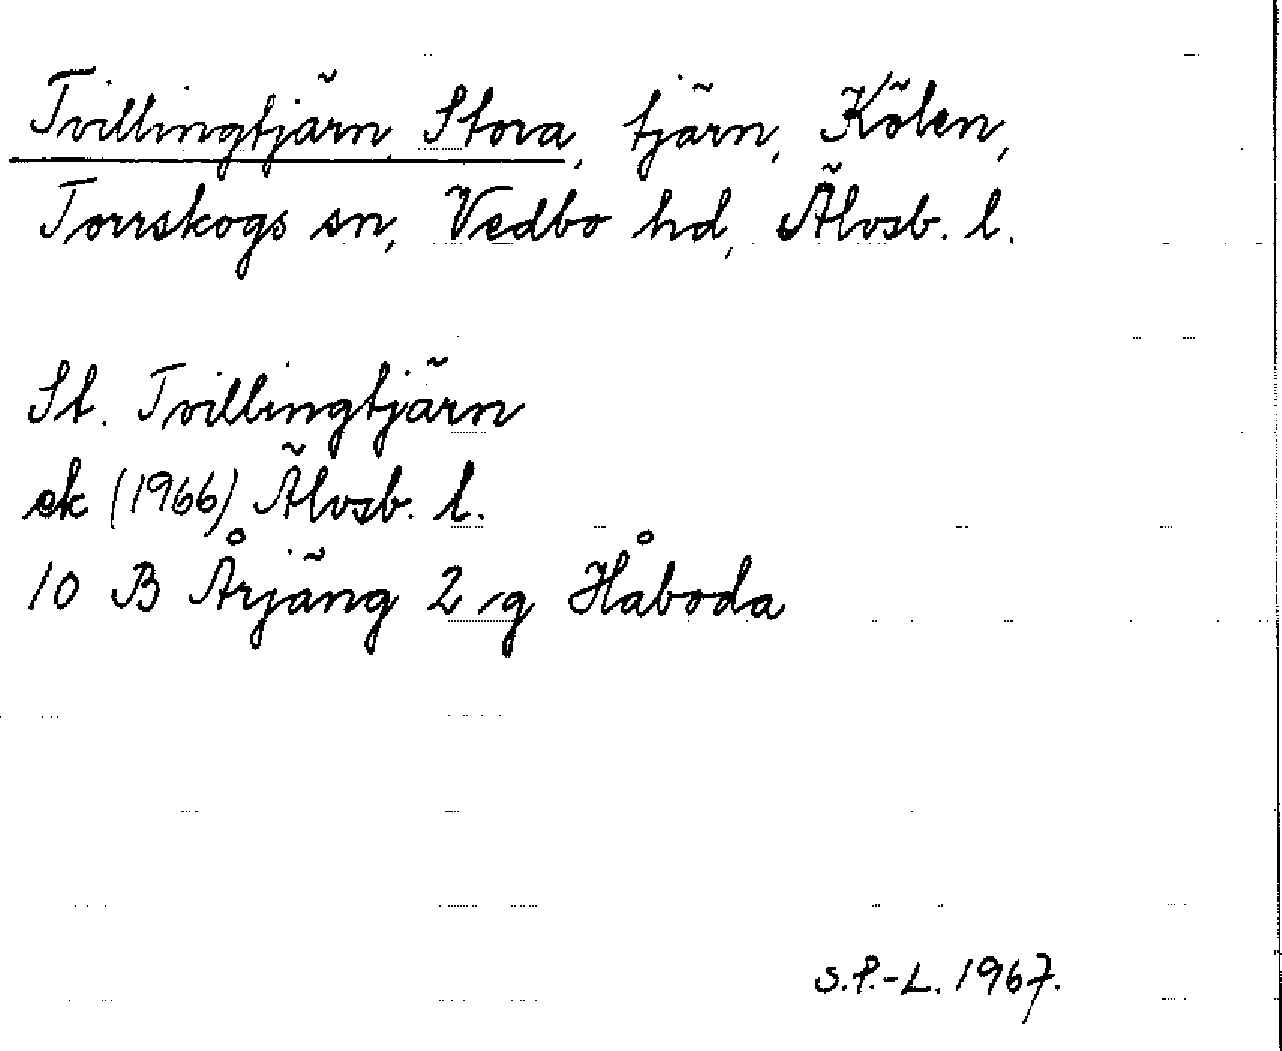 Tvillingtjärn, Stora, tjärn, Kölen,
Torrskogs sn, Vedbo hd, Älvsb. l.
St. Tvillingtjärn
ek (1966) Älvsb. l.
10 B Årjäng 2 g Håboda
S.P.-L. 1967.